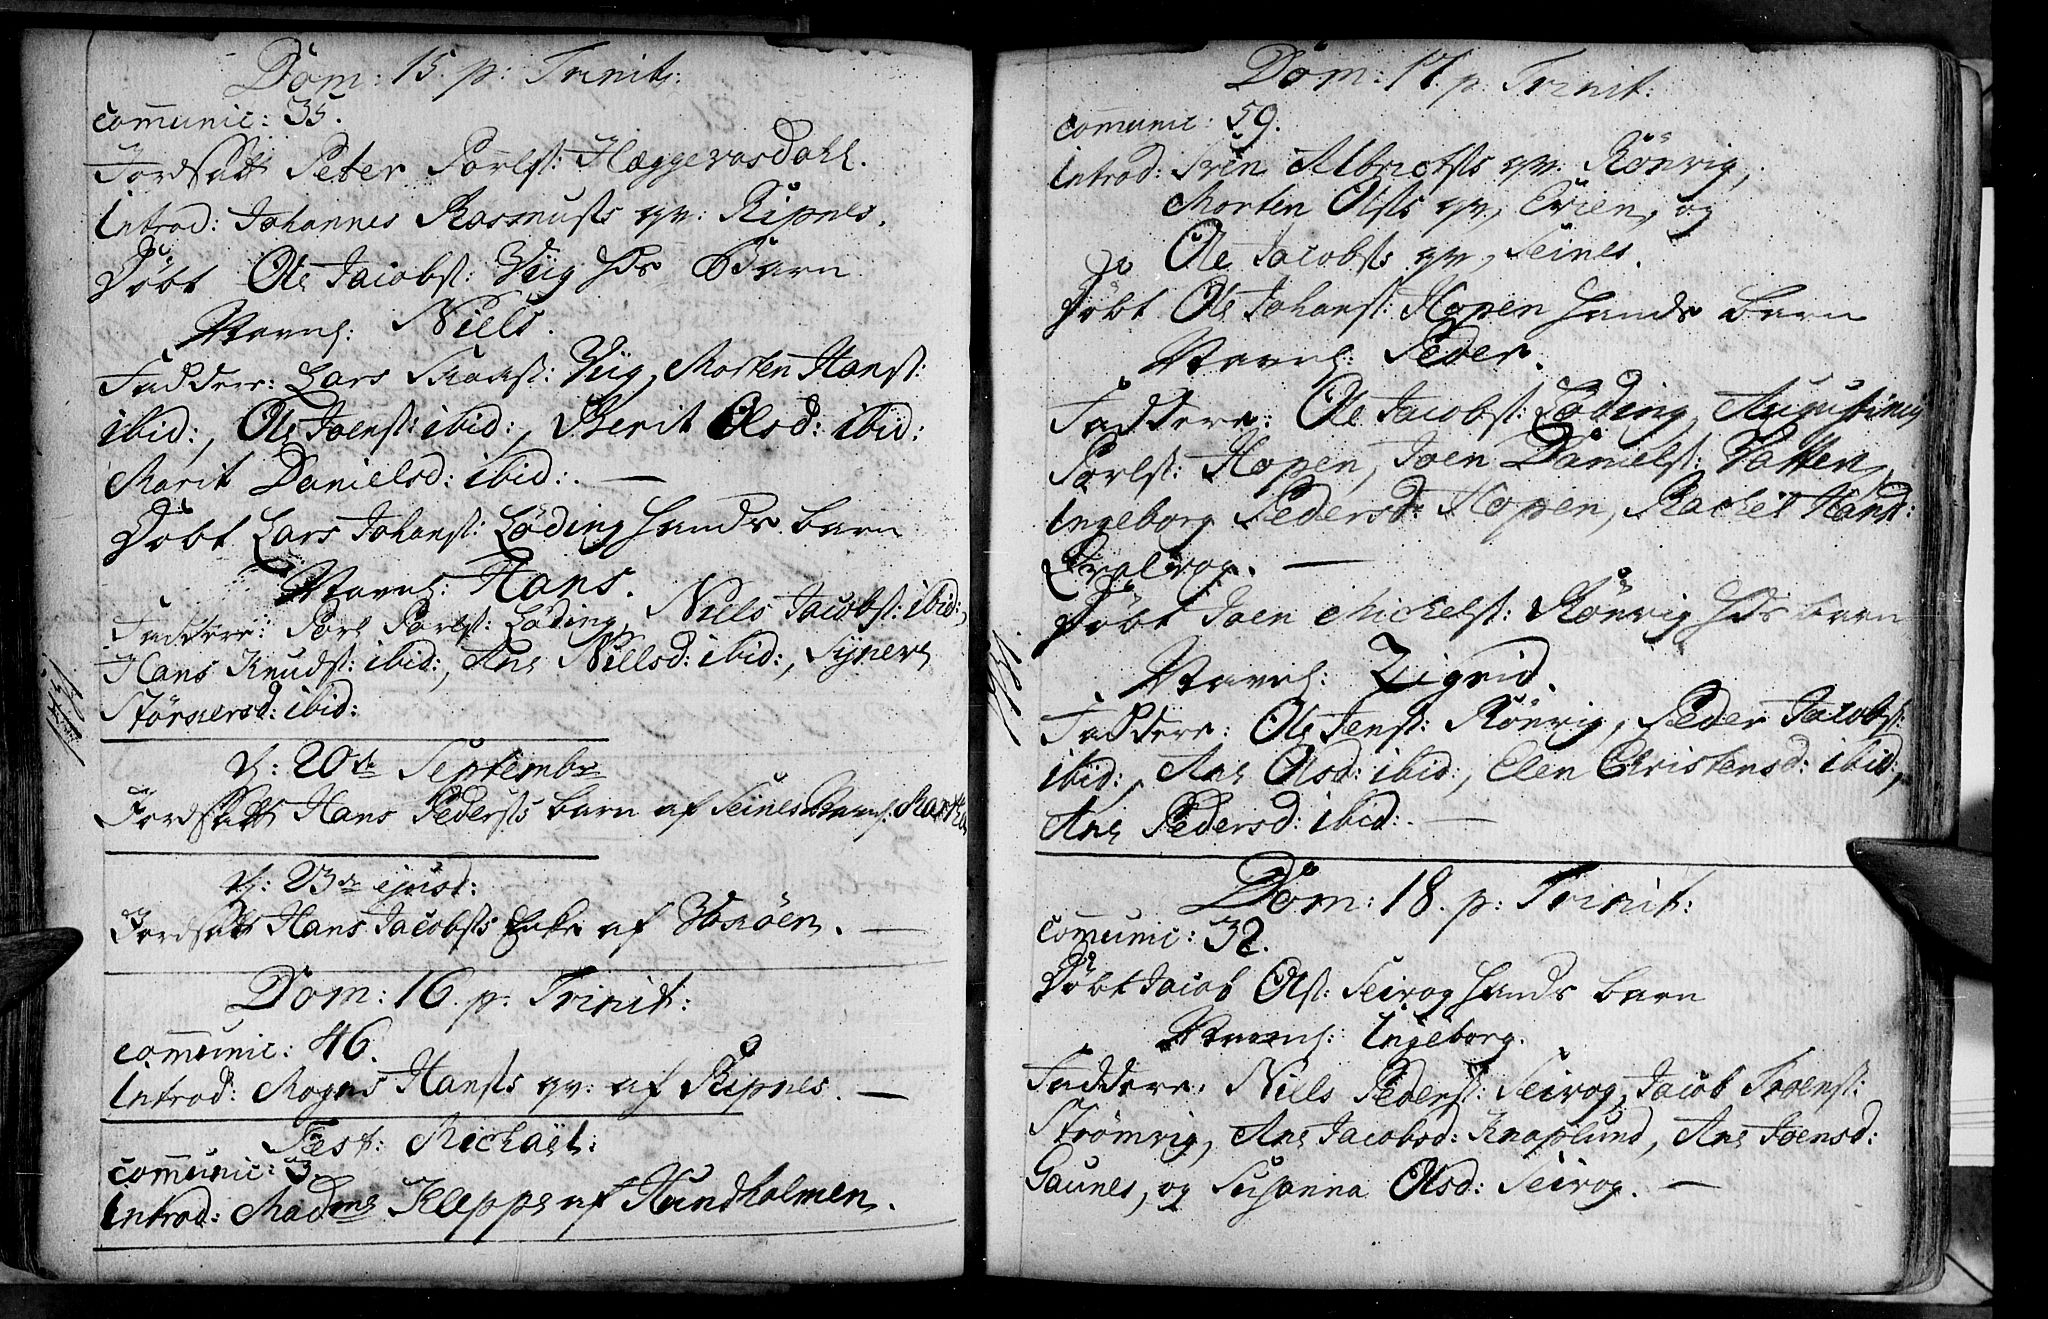 Dom: 15. p: Trinit:
comunic: 35.
Jordsatt Peter Povelst: Heggevasdahl.
Introd: Johannes Rasmusts qv: Ripnes.
Döbt Ole Jacobst: Viig Hds Barn
Navnl: Niels.
Faddere: Lars Viig, Morten Hanst:
ibid:, Ole Joenst: ibid:, Berit Olsd: ibid:
Marit Danielsd: ibid:. —
Döbt Lars Johanst: Löding Hands barn
Navnl: Hans.
Faddere: Povl Povlst: Löding, Niels Jacobst: ibid:,
Hans Knudst: ibid:, Ane Nillsd: ibid:,
Störnersd: ibid:
1731
d: 20de Septembr
Jordsatt Hans Pedersts barn af Seines Navnl: Martha
d: 23de ejusd:
Jordsatt Hans Jacobsts Enke af
Dom: 16. p. Trinit:
comunic: 46.
Introd: Mogns Hansts qv: af Ripnes. —
Fest: Michaël:
comunic: 3.
Introd: Madme Kleppe af Hundholmen.
Dom: 17. p: Trinit:
comunic: 59.
Introd: Sven Albrictsts qv: Rönvig,
Morten Olsts qv, Evien, og
Ole Jacobsts qv, Seines.
Döbt Ole Johanst: Hopen Hands barn
Navnl: Peder.
Faddere: Ole Jacobst: Löding, Augustinus
Povelst: Hopen, Joen Danielst: Vatten,
Ingeborg Pedersd: Hopen, Rachel Hansd:

Döbt Joen Mickelst: Rönvig Hds barn
1731.
Navnl: Zigrid.
Faddere: Ole Jenst: Rönvig, Peder Jacobst:
ibid:, Ane Olsd: ibid:, Elen Christensd: ibid:,
Ane Pedersd: ibid:. —
Dom: 18. p: Trinit:
comunic: 32.
Döbt Jacob Olst: Seivog Hands barn
Navnl: Ingeborg.
Faddere: Niels Pederst: Seivog, Jacob Toenst:
Strömvig, Ane Jacobsd: Knaplund, Ane Joensd:
Gaunes, og Susanna Olsd: Seivog. —